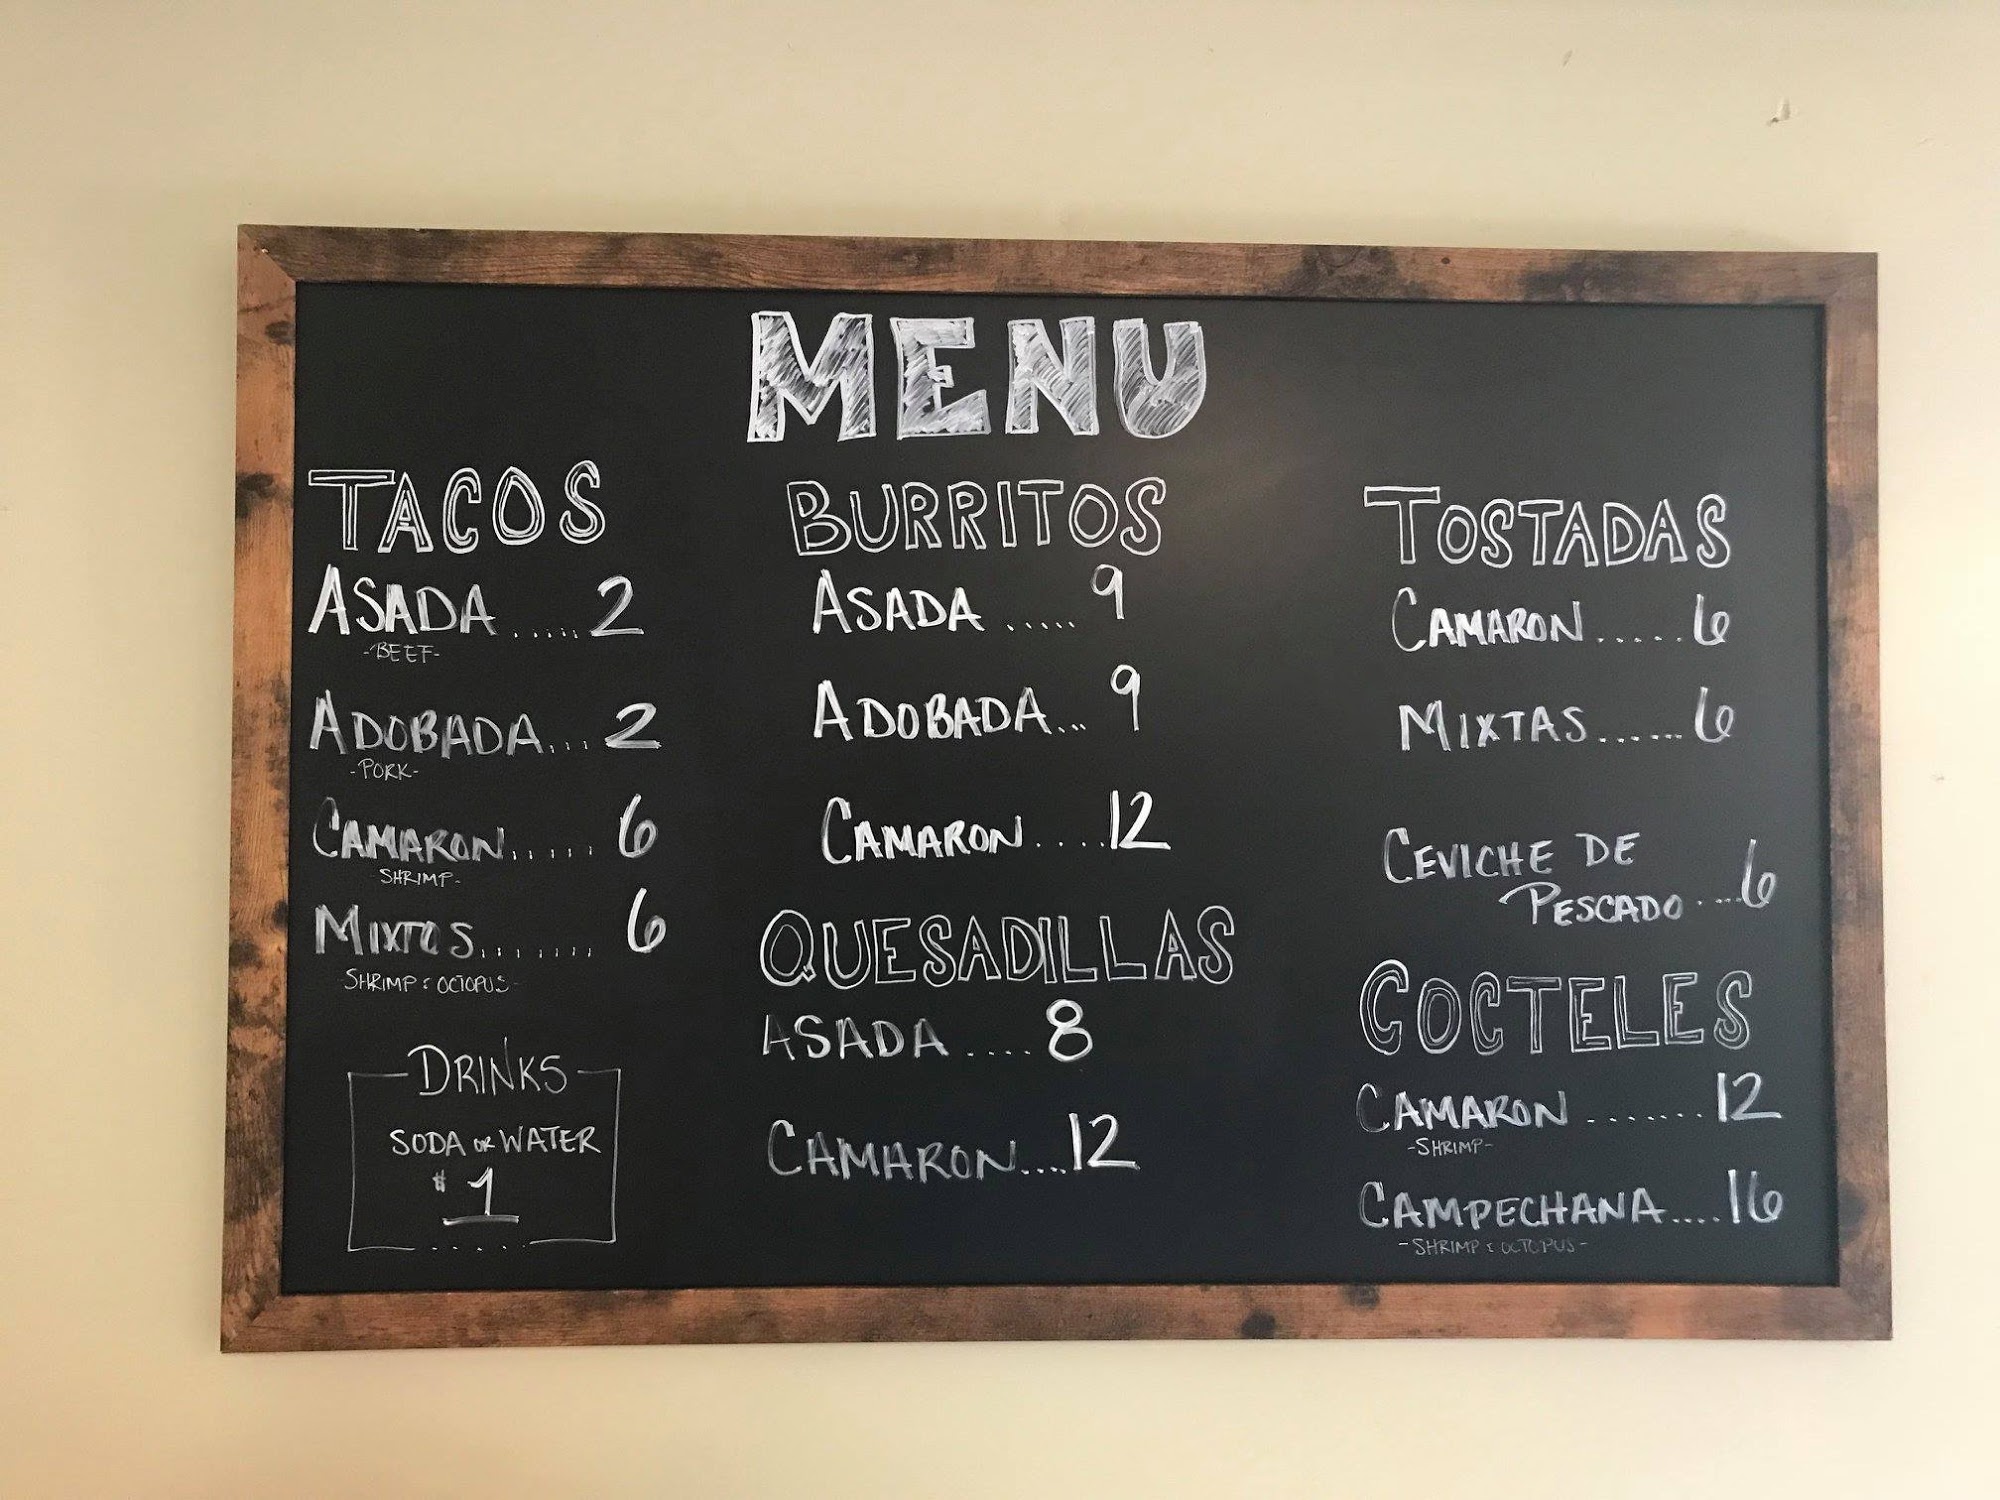 MENU
TACOS
ASADA ..... 2
-BEEF-
ADOBADA... 2
-PORK-
CAMARON..... 6
SHRIMP-
MIXTOS....... 6
SHRIMP & OCTOPUS-
DRINKS
SODA OR WATER
$1
BURRITOS
ASADA ..... 9
ADOBADA... 9
CAMARON ....12
QUESADILLAS
ASADA .... 8
CAMARON....12
TOSTADAS
CAMARON.....6
MIXTAS......6
CEVICHE DE
PESCADO ....6
COCTELES
CAMARON .......12
-SHRIMP-
CAMPECHANA....16
-SHRIMP & OCTOPUS-